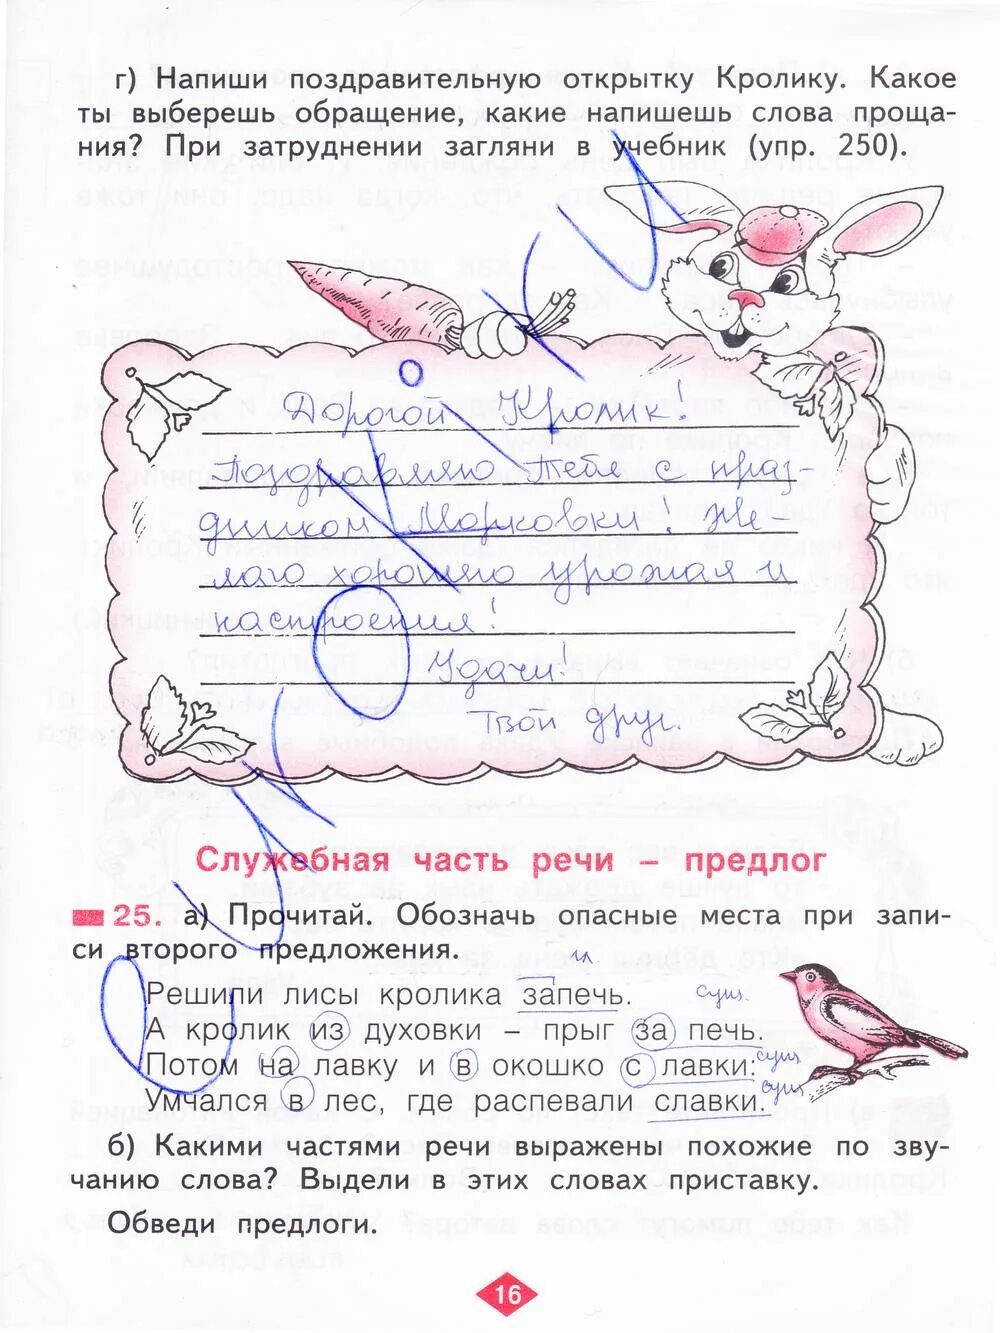 г) Напиши поздравительную открытку Кролику. Какое
ты выберешь обращение, какие напишешь слова проща-
ния? При затруднении загляни в учебник (упр. 250).
Дорогой Кролик!
Поздравляю Тебя с праз-
дником Морковки! Же-
лаю хорошего урожая и
настроения!
Удачи!
Твой друг.
Служебная часть речи – предлог
25. а) Прочитай. Обозначь опасные места при запи-
си второго предложения.
гл.
Решили лисы кролика запечь. сущ.
А кролик из духовки – прыг за печь.
Потом на лавку и в окошко с лавки: сущ
Умчался в лес, где распевали славки. сущ
б) Какими частями речи выражены похожие по зву-
чанию слова? Выдели в этих словах приставку.
Обведи предлоги.
16